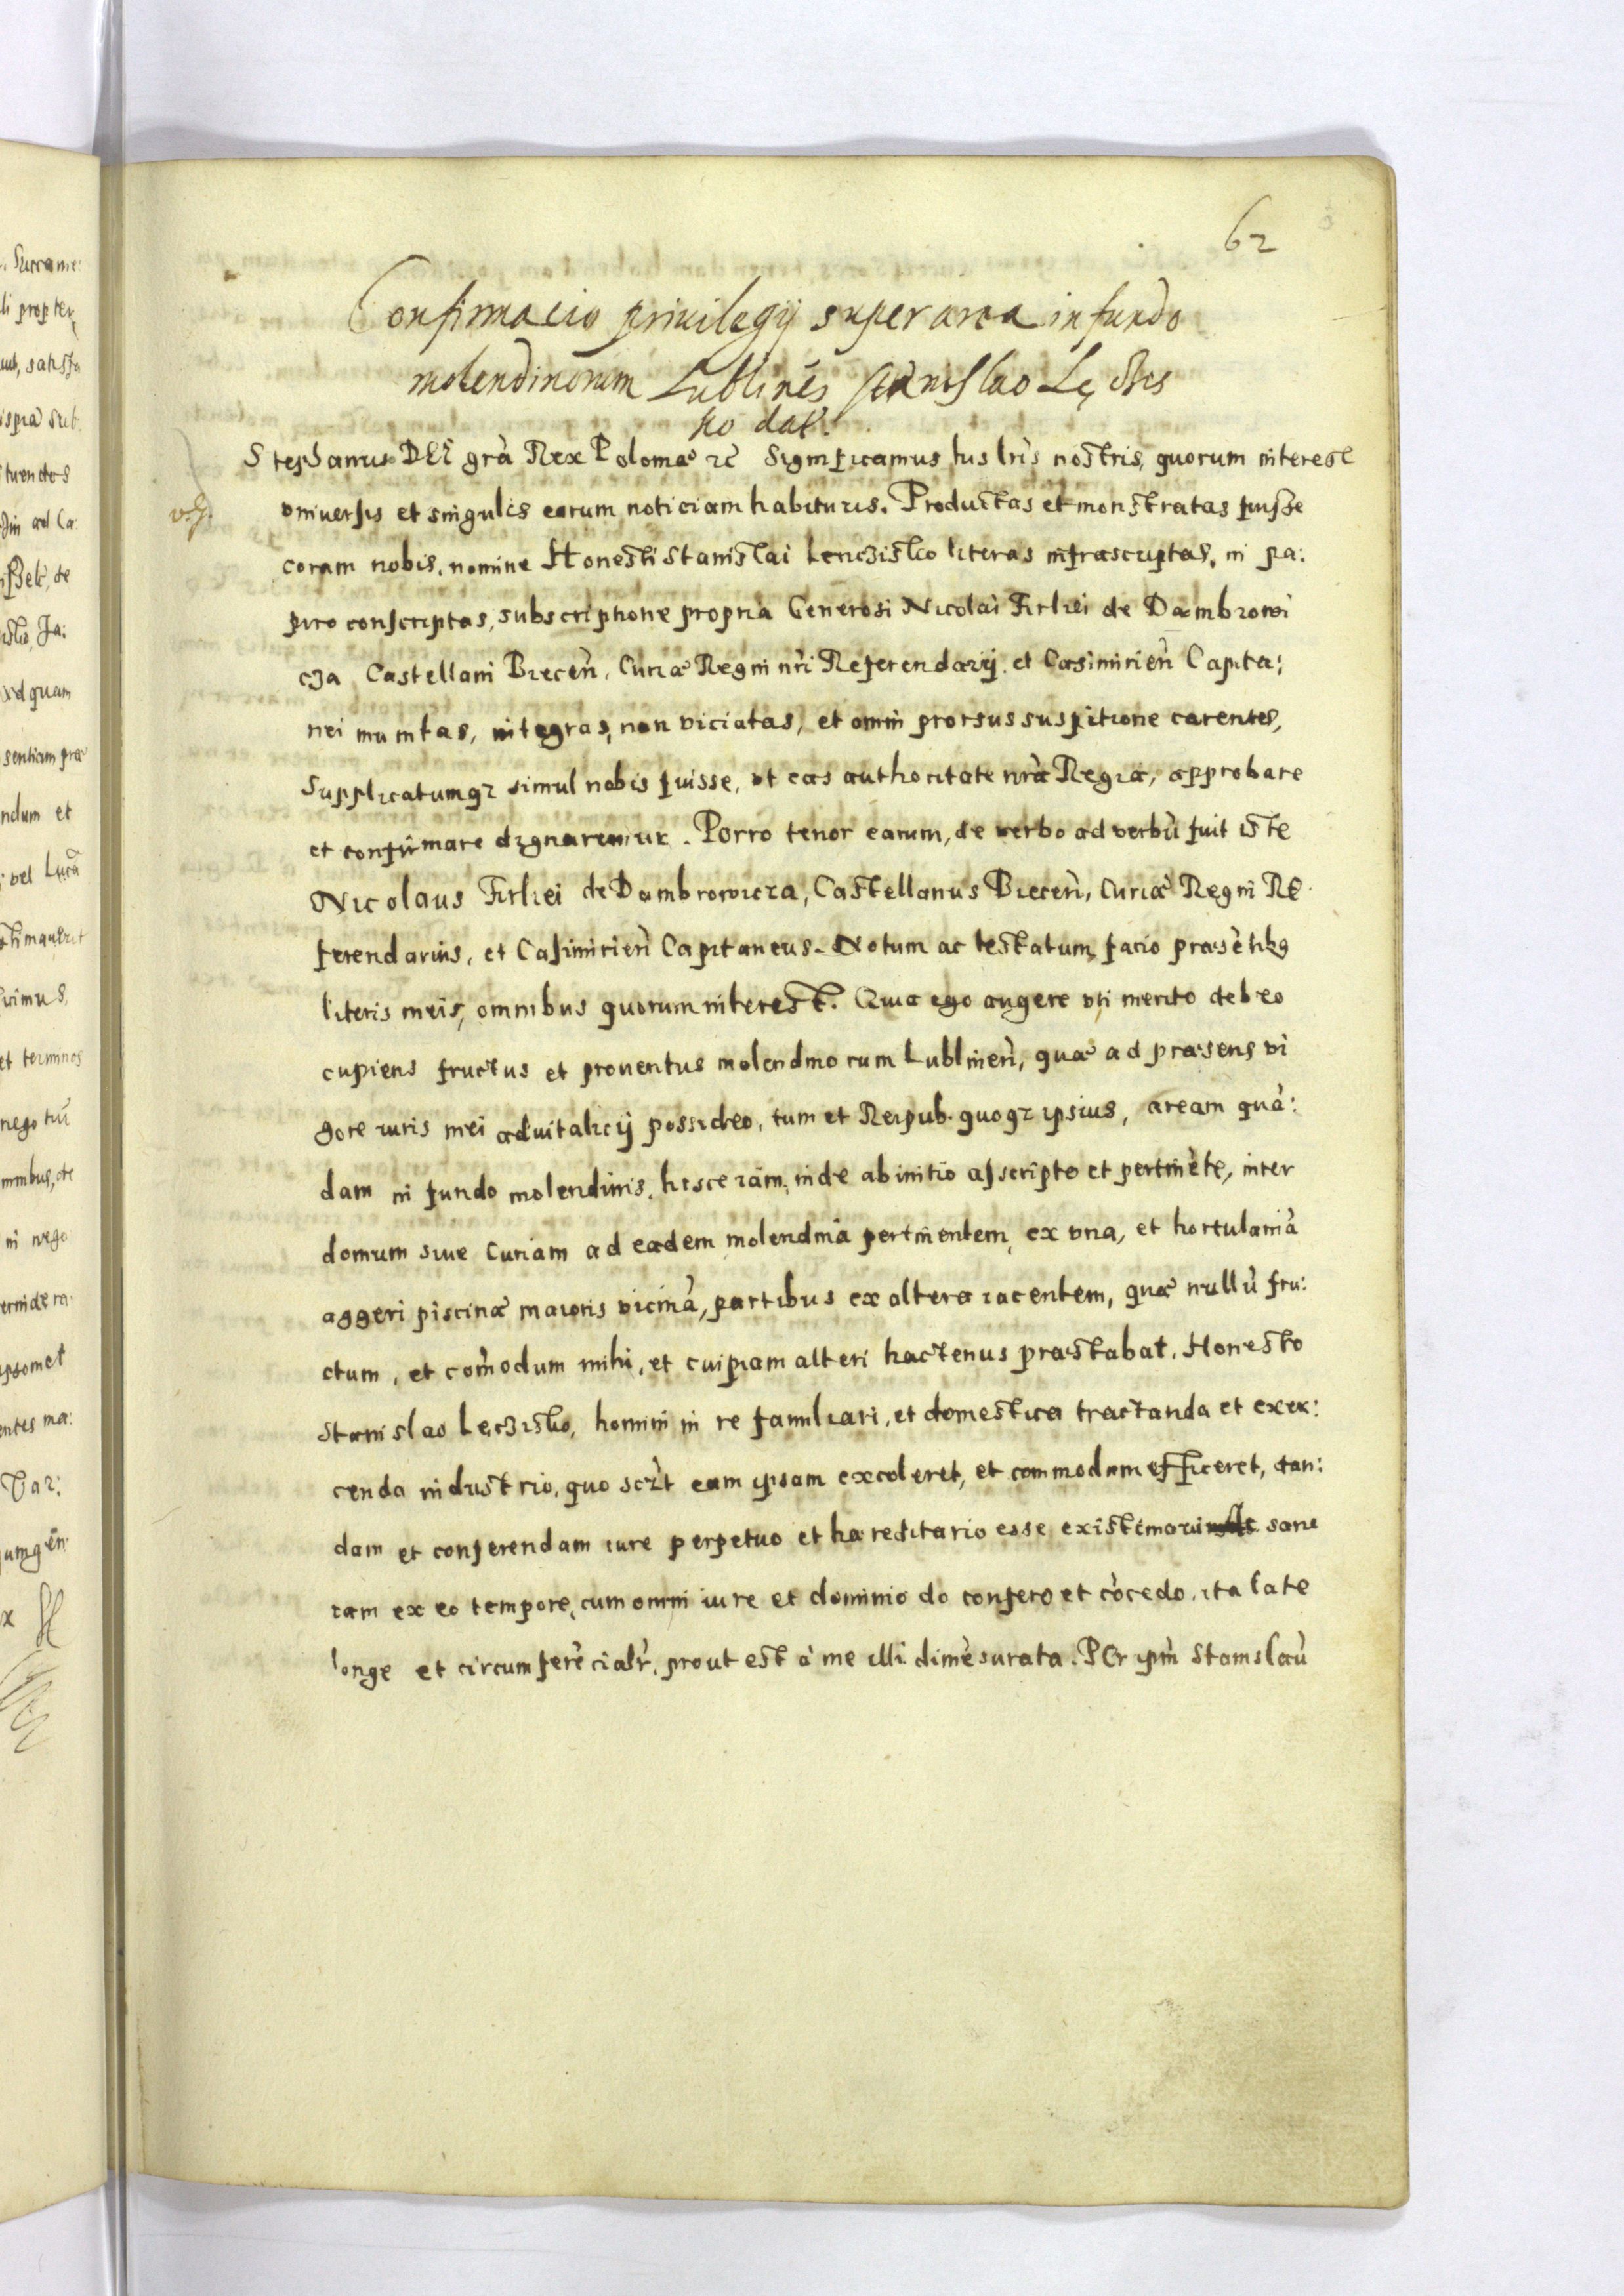 62
Confirmacio priuilegij super area in fundo
molendinorum Lublinēs Stanislao Lęchis
ko dat.
Stephanus DEI grã Rex Poloniæ etc̃ Significamus hus lr̃is nostris, quorum interest
vniuersis et singulis earum noticiam habituris. Productas et monstratas fuisse
coram nobis, nomine Honesti Stanislai Lenczisko literas infrascriptas, in pa:
piro conscriptas, subscriptione propria Generosi Nicolai Firliei de Dambrowi
cza Castellani Biecen̄, Curiæ Regni nr̃i Referendarij, et Casimirien̄ Capita:
nei munitas, integras, non viciatas, et omni prorsus suspitione carentes,
Supplicatumqz simul nobis fuisse, vt eas authoritate nrã Regia, approbare
et confirmare dignaremur. Porro tenor earum, de verbo ad verbū fuit iste
Nicolaus Firliei de Dambrowicza, Castellanus Biecen̄, Curiæ Regni Re
ferendarius, et Casimirien̄ Capitaneus. Notum ac testatum facio præsētibg
literis meis, omnibus quorum interest. Quia ego augere vti merito debeo
cupiens fructus et prouentus molendinorum Lublinen̄, quæ ad præsens vi
gore iuris mei aduitalicij possideo, tum et Reipub. quoqz ipsius, aream quā:
dam in fundo molendinis, hisce iam, inde ab initio asscripto et pertinēte, inter
domum siue Curiam ad eadem molendina pertinentem, ex vna, et hortulaniā
aggeri piscinæ maioris vicinā, partibus ex altera iacentem, quæ nullū fru:
ctum, et com̄odum mihi, et cuipiam alteri hactenus præstabat. Honesto
Stanislao Lęczisko, homini in re familiari, et domestica tractanda et exer:
cenda industrio, quo scr̃t eam ipsam excoleret, et commodam efficeret, dan:
dam et conferendam iure perpetuo et hæreditario esse existimaui sane
iam ex eo tempore, cum omni iure et dominio do confero et cōcedo, ita late
longe et circumferēcialr̃, prout est à me illi dimēsurata. Per ipm̄ Stanislaū